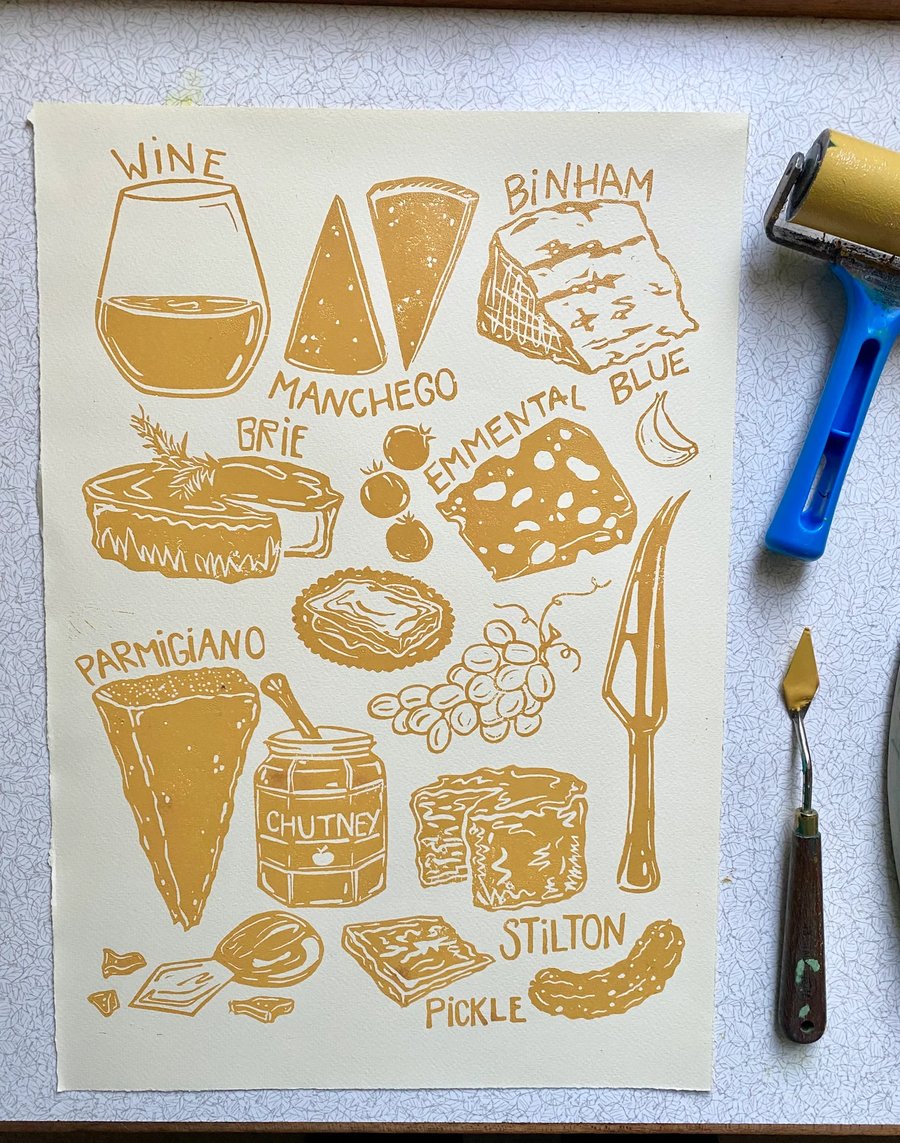 WiNE
BiNHAM
BLUE
MANCHEGO
BRIE
EMMENTAL
PARMiGiANO
CHUTNEY
STiLTON
PiCKLE